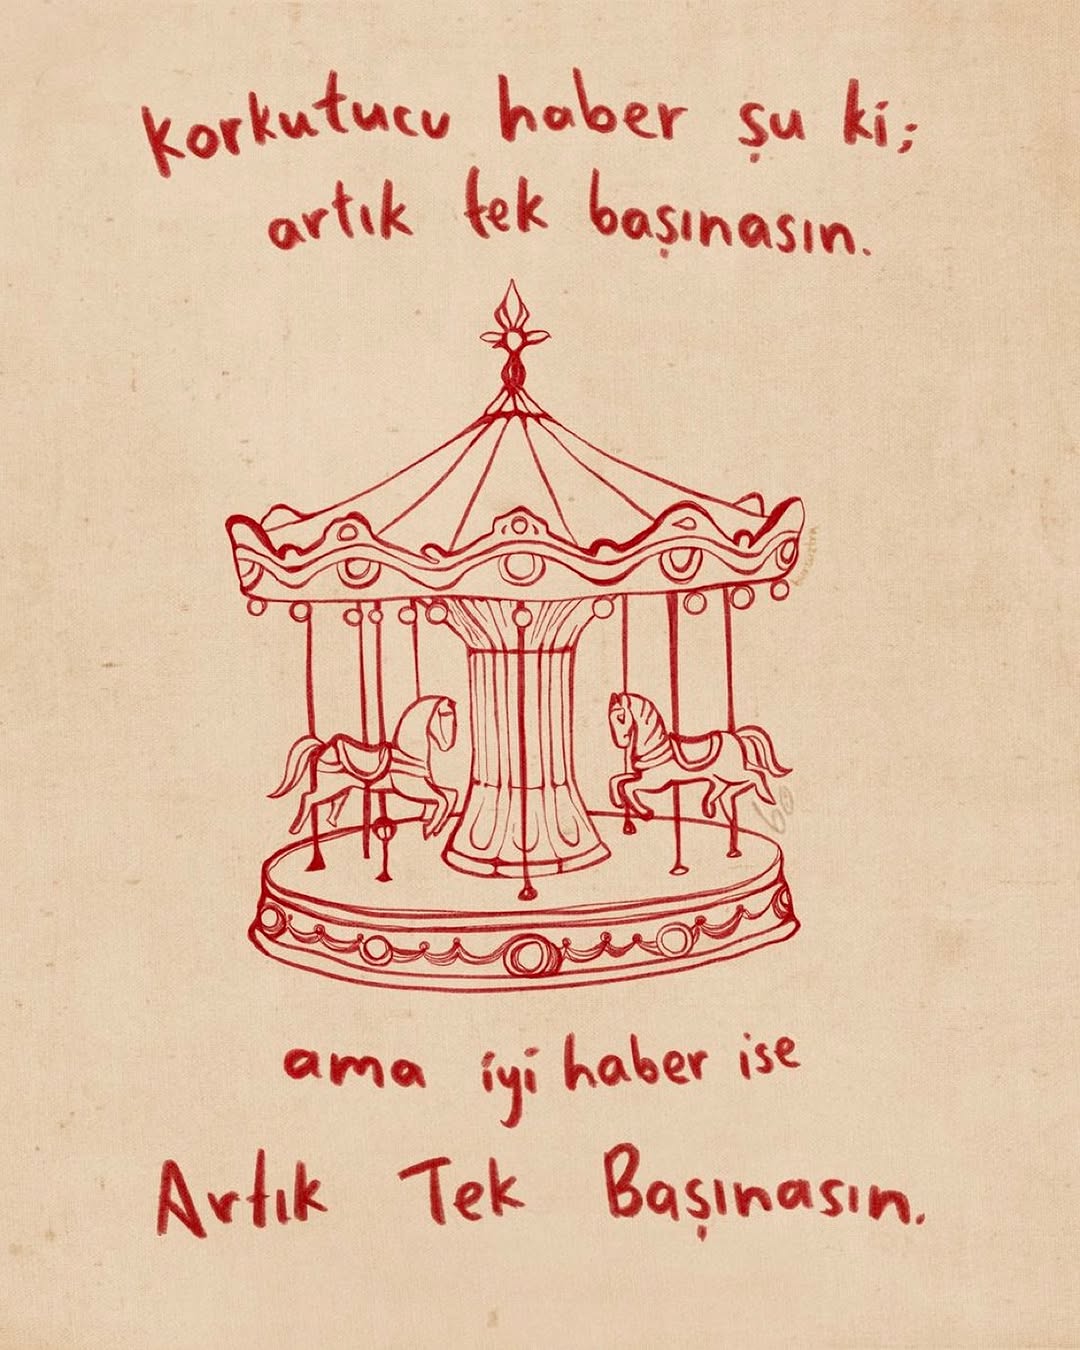 korkutucu haber şu ki;
artık tek başınasın.
ama iyi haber ise
Artık Tek Başınasın.